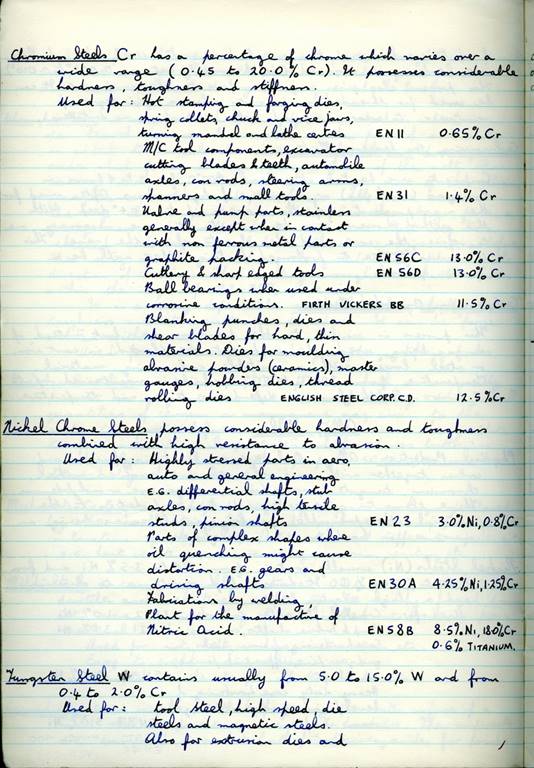 Chromium Steels Cr has a percentage of chrome which varies over a
wide range (0.45 to 20.0% Cr). It possesses considerable
hardness, toughness and stiffness.
Used for: Hot stamping and forging dies,
spring collets, chuck and vice jaws,
turning mandrel and lathe centres EN 11 0.65% Cr
M/C tool components, excavator
cutting blades & teeth, automobile
axles, con rods, steering arms,
spanners and small tools. EN 31 1.4% Cr
Valve and pump parts, stainless
generally except when in contact
with non ferrous metal parts or
graphite packing. EN 56C 13.0% Cr
Cutlery & sharp edged tools EN 56D 13.0% Cr
Ball bearings when used under
corrosive conditions. FIRTH VICKERS BB 11.5% Cr
Blanking punches, dies and
shear blades for hard, thin
materials. Dies for moulding
abrasive powders (ceramics), master
gauges, hobbing dies, thread
rolling dies ENGLISH STEEL CORP. C.D. 12.5% Cr
Nickel Chrome Steels possess considerable hardness and toughness
combined with high resistance to abrasion.
Used for: Highly stressed parts in aero,
auto and general engineering
E.G. differential shafts, stub
axles, con rods, high tensile
studs, pinion shafts EN 23 3.0% Ni, 0.8% Cr
Parts of complex shapes where
oil quenching might cause
distortion. E.G. gears and
driving shafts EN 30A 4.25% Ni, 1.25% Cr
Fabrications by welding,
Plant for the manufacture of
Nitric Acid. EN 58B 8.5% Ni, 18.0% Cr
0.6% TITANIUM.
Tungsten Steel W contains usually from 5.0 to 15.0% W and from
0.4 to 2.0% Cr
Used for: tool steel, high speed, die
steels and magnetic steels.
Also for extrusion dies and